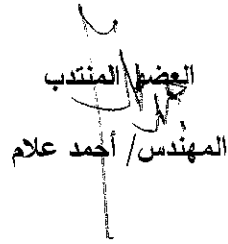 العضو المنتدب
المهندس/ أحمد علام